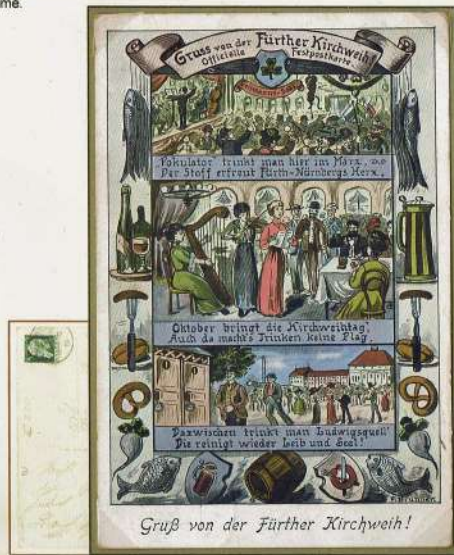 me.
Gruss von der Further Kirchweih!
Officielle Festpostkarte.
Pokulator trinkt man hier im März,
Der Stoff erfreut Fürth-Nürnbergs Herz.
Oktober bringt die Kirchweihtag',
Auch da macht's Trinken keine Plag.
Dazwischen trinkt man Ludwigsquell'
Die reinigt wieder Leib und Seel!
Gruß von der Fürther Kirchweih!